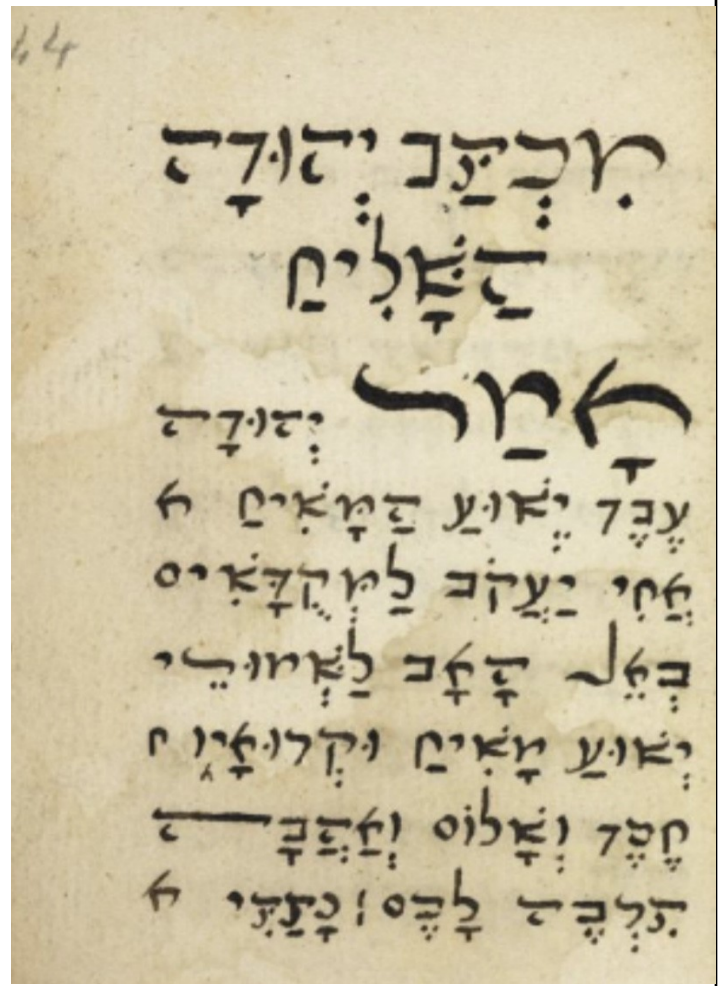 44
מִכְתַּב יְהוּדָה
הַשָּׁלִיחַ
אָמַר יְהוּדָה
עֶבֶד יֵשׁוּעַ הַמָּשִׁיחַ א
אֲחִי יַעֲקֹב לַמְּקֻדָּשִׁים
בְּאֵל הָאָב לַשְׁמוּרֵי
יְשׁוּעַ מָשִׁיחַ וּקְרוּאָיו ח
חֶסֶד וְשָׁלוֹם וְאַהֲבָה
תִּרְבֶּה לָכֶם׃ א